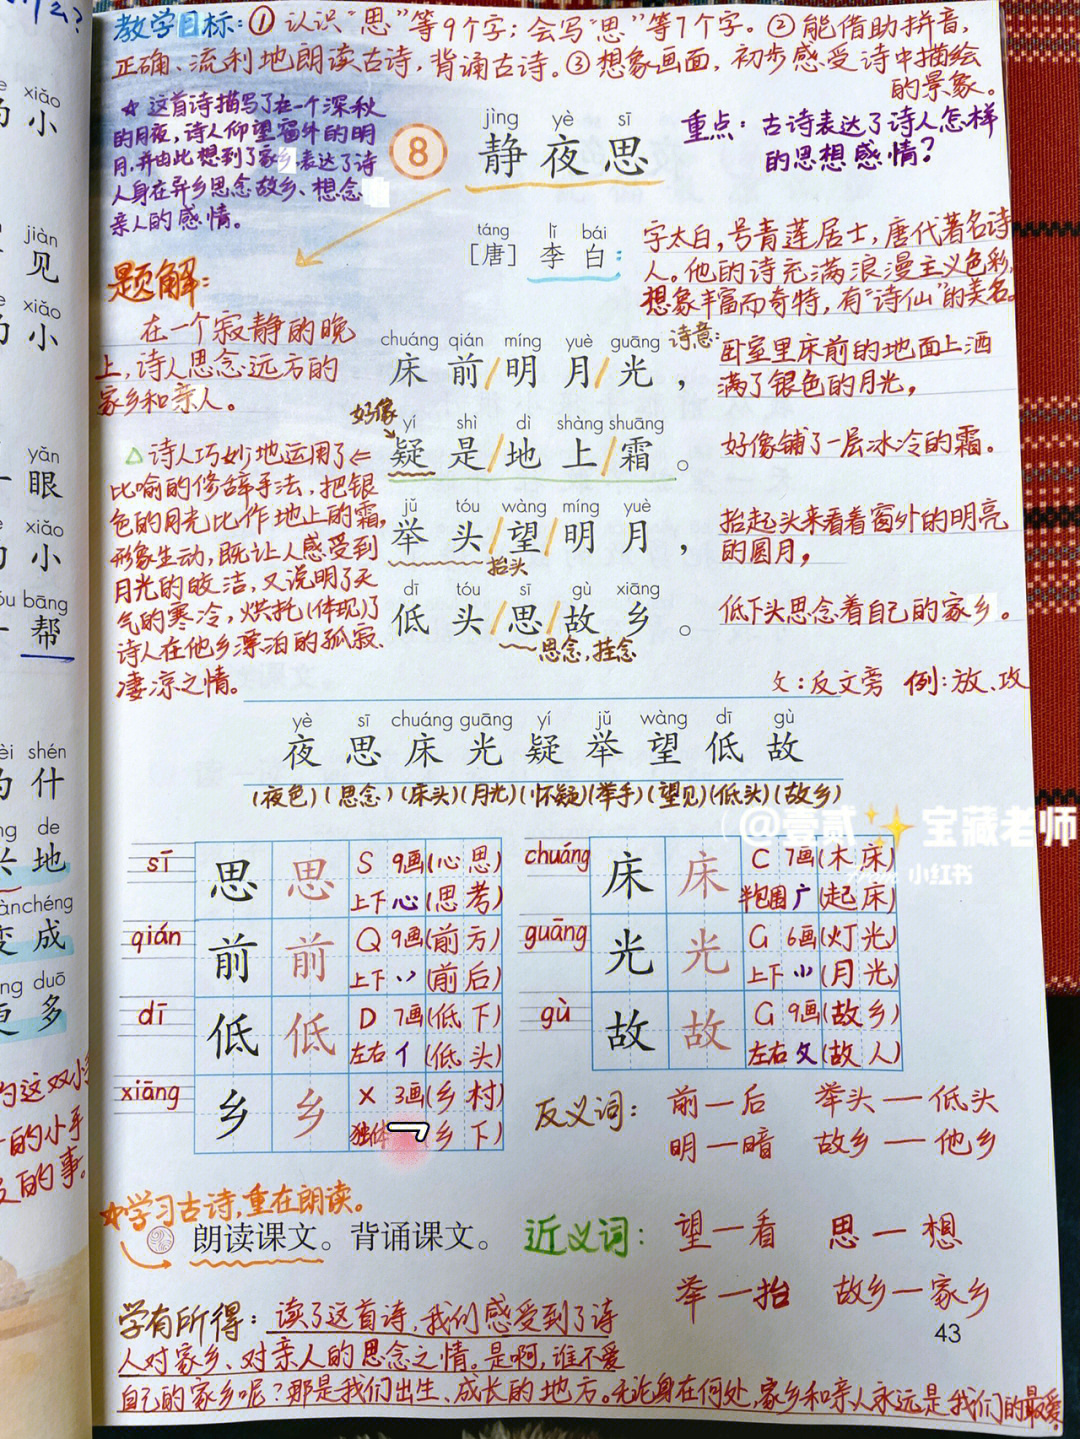 教学目标:①认识“思”等9个字;会写“思”等7个字。②能借助拼音,
正确、流利地朗读古诗,背诵古诗。③想象画面,初步感受诗中描绘
的景象。
☆这首诗描写了在一个深秋
的月夜,诗人仰望窗外的明
月,并由此想到了家乡,表达了诗
人身在异乡思念故乡、想念
亲人的感情。
8
jìng yè sī
静夜思
重点:古诗表达了诗人怎样
的思想感情?
táng lǐ bái
[唐] 李白:
字太白,号青莲居士,唐代著名诗
人。他的诗充满浪漫主义色彩,
想象丰富而奇特,有“诗仙”的美名。
题解:
在一个寂静的晚
上,诗人思念远方的
家乡和亲人。
chuáng qián míng yuè guāng
床前/明月/光,
诗意:
卧室里床前的地面上洒
满了银色的月光,
好像
yí shì dì shàng shuāng
疑是/地上/霜。
好像铺了一层冰冷的霜。
jǔ tóu wàng míng yuè
举头/望/明月,
抬头
抬起头来看着窗外的明亮
的圆月,
dī tóu sī gù xiāng
低头/思/故乡。
思念,挂念
低下头思念着自己的家乡。
△诗人巧妙地运用了←
比喻的修辞手法,把银
色的月光比作地上的霜,
形象生动,既让人感受到
月光的皎洁,又说明了天
气的寒冷,烘托(体现)了
诗人在他乡漂泊的孤寂、
凄凉之情。
攵:反文旁 例:放、攻
yè sī chuáng guāng yí jǔ wàng dī gù
夜思床光疑举望低故
(夜色)(思念)(床头)(月光)(怀疑)(举手)(望见)(低头)(故乡)
@壹贰✨宝藏老师
小红书
sī 思 思 S 9画(心思)
上下 心 (思考)
qián 前 前 Q 9画(前方)
上下 丷 (前后)
dī 低 低 D 7画(低下)
左右 亻 (低头)
xiāng 乡 乡 X 3画(乡村)
独体 乛 (乡下)
chuáng 床 床 C 7画(木床)
半包围 广 (起床)
guāng 光 光 G 6画(灯光)
上下 ⺌ (月光)
gù 故 故 G 9画(故乡)
左右 攵 (故人)
反义词: 前—后 举头—低头
明—暗 故乡—他乡
☆学习古诗,重在朗读。
朗读课文。背诵课文。
近义词: 望—看 思—想
举—抬 故乡—家乡
学有所得:读了这首诗,我们感受到了诗
人对家乡、对亲人的思念之情。是啊,谁不爱
自己的家乡呢?那是我们出生、成长的地方。无论身在何处,家乡和亲人永远是我们的最爱。
43
xiǎo
小
jiàn
见
xiǎo
小
yǎn
眼
xiǎo
小
bāng
帮
shén
什
de
地
chéng
成
duō
多